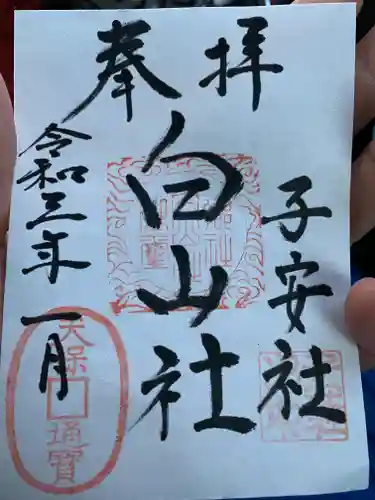 奉拝
子安社
白山社
令和三年一月
天保
通寳